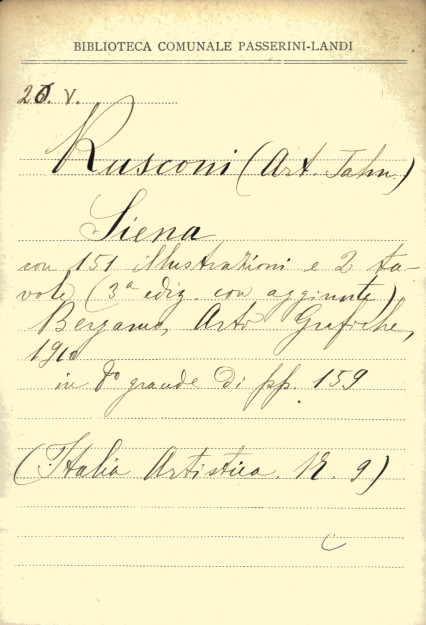 BIBLIOTECA COMUNALE PASSERINI-LANDI
20. V.
Rusconi (Art. Jahn.)
Siena
con 151 illustrazioni e 2 ta-
vole (3ª ediz. con aggiunte)
Bergamo, Arti Grafiche,
1910
in 8º grande di pp. 159
(Italia Artistica. N. 9)